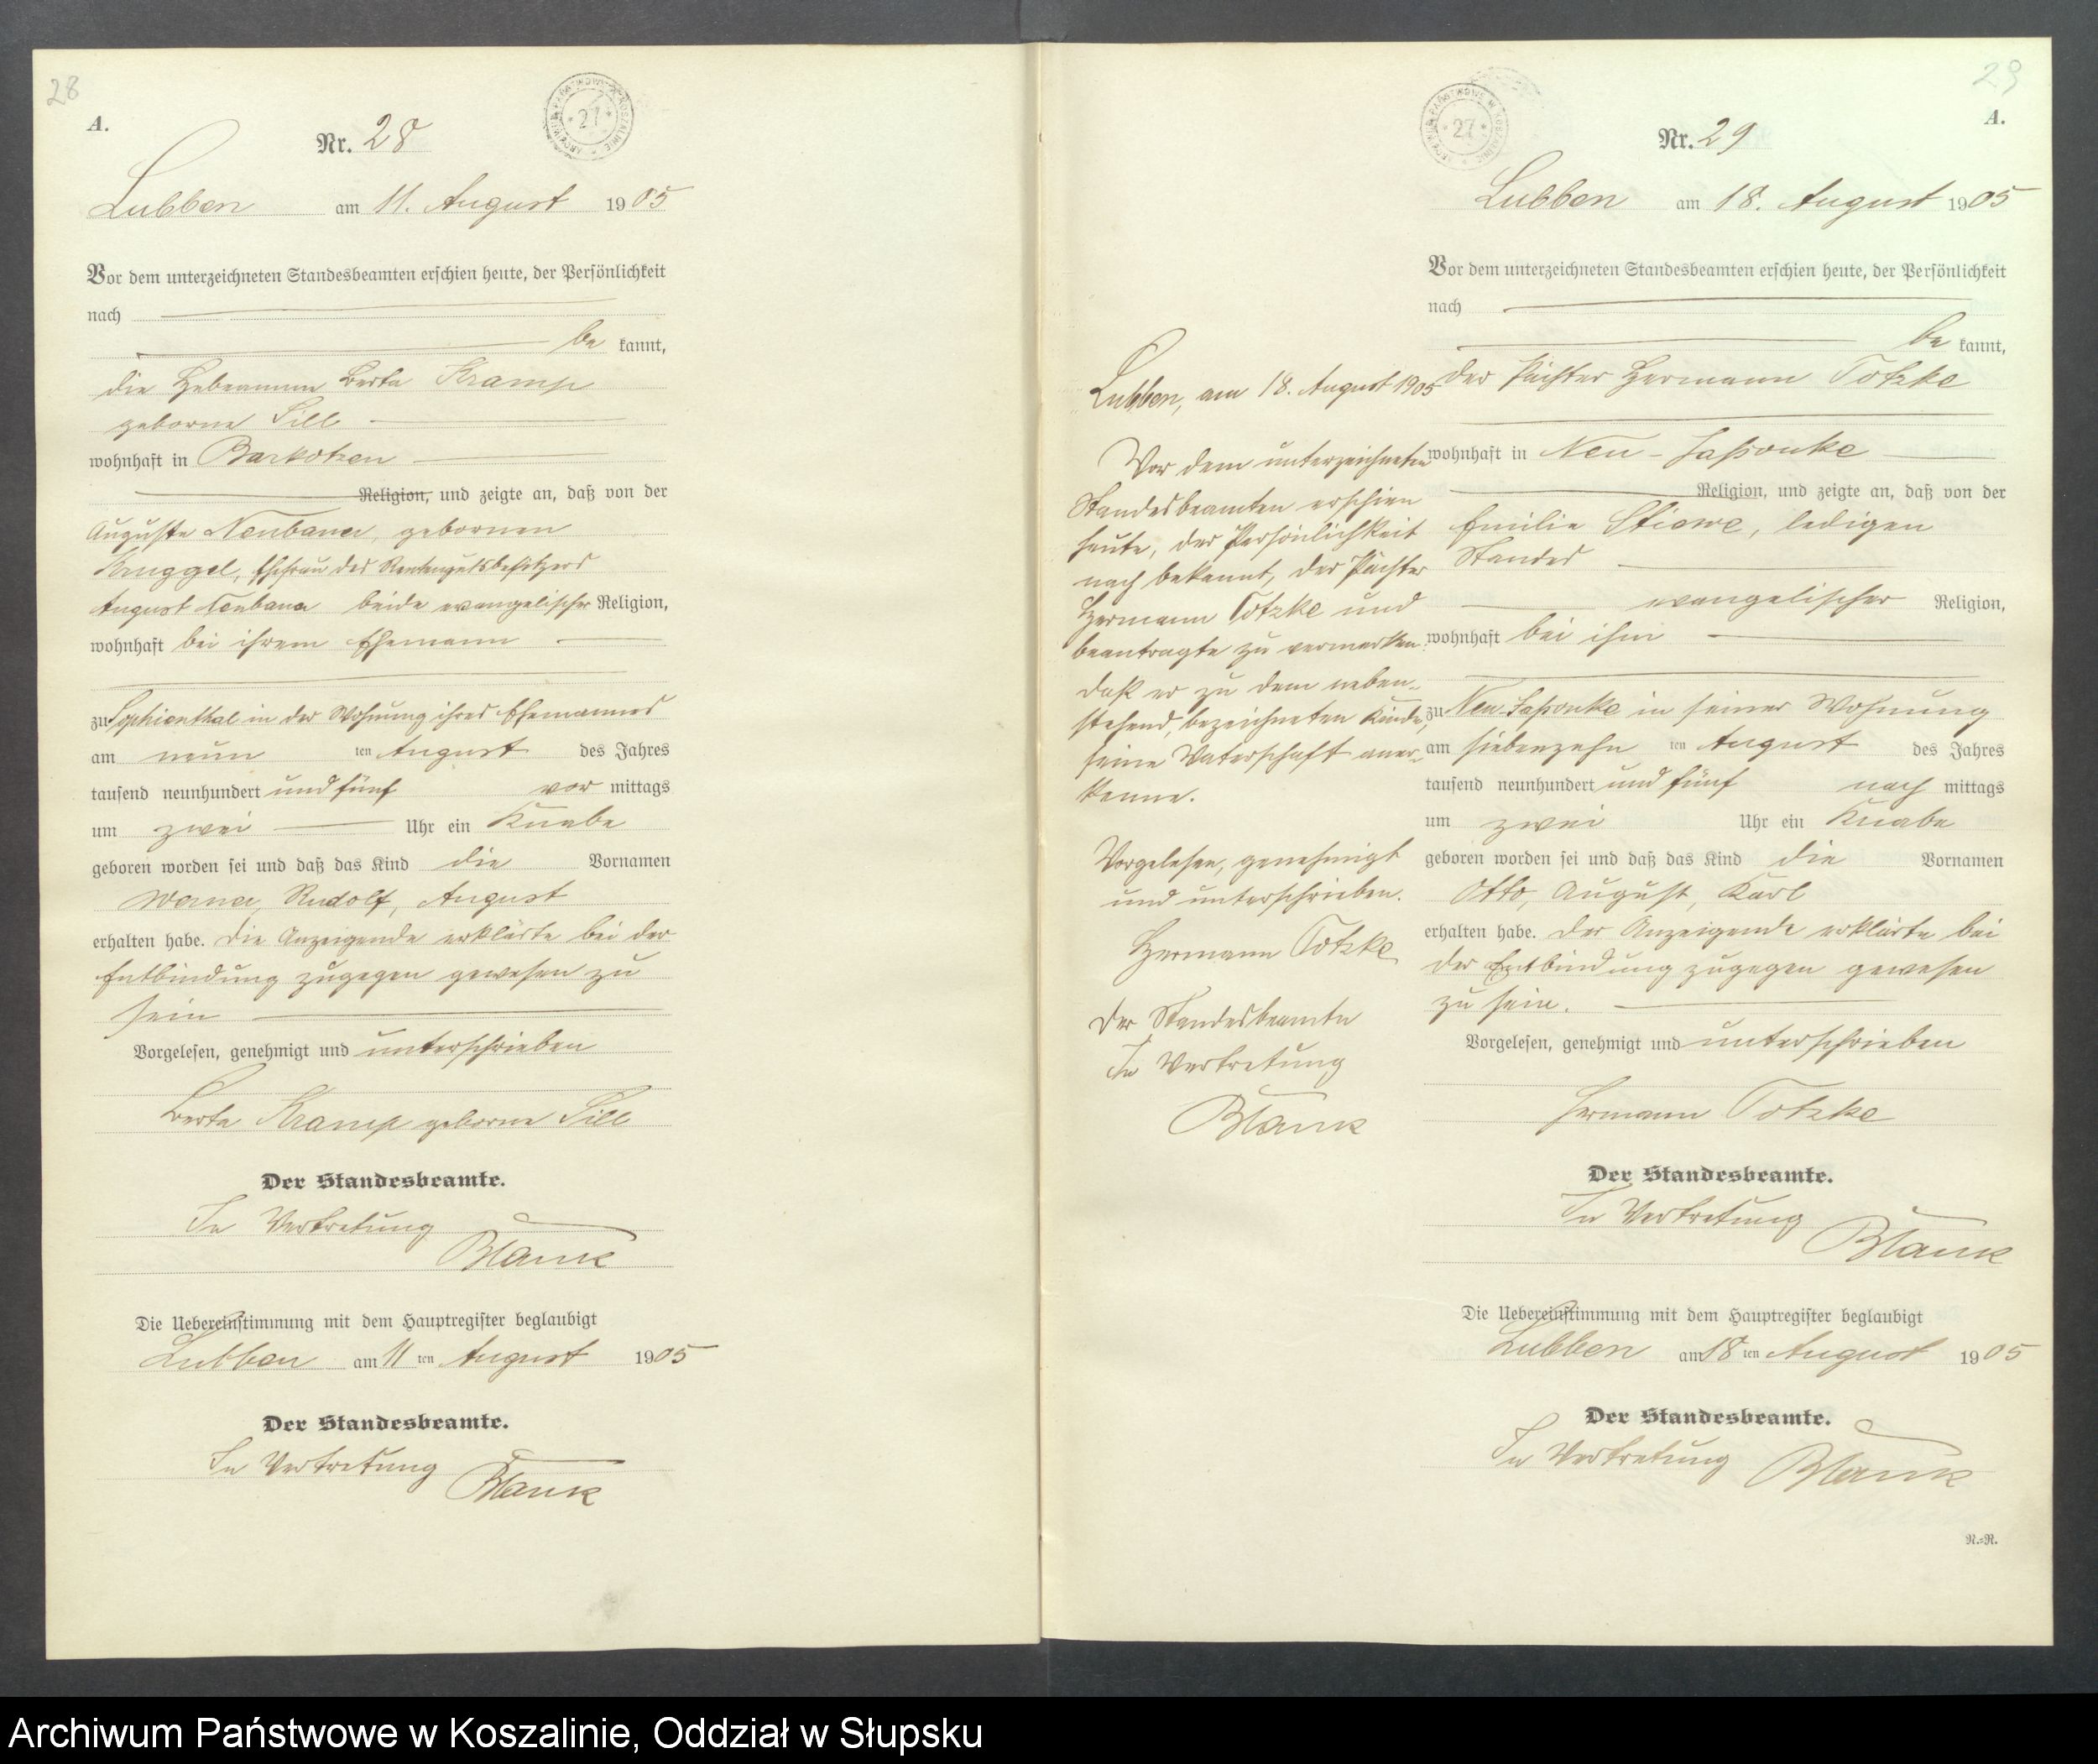 28
A.
Nr. 28
ARCHIWUM PAŃSTWOWE W KOSZALINIE
27
Lubben am 11. August 1905
Vor dem unterzeichneten Standesbeamten erschien heute, der Persönlichkeit
nach
be kannt,
die Hebeamme Berta Kramp
geborne Sill
wohnhaft in Barkotzen
Religion, und zeigte an, daß von der
Auguste Neubauer, gebornen
Kruggel, Ehefrau des Rentengutsbesitzers
August Neubauer beide evangelischer Religion,
wohnhaft bei ihrem Ehemann
zu Sophienthal in der Wohnung ihres Ehemannes
am neun ten August des Jahres
tausend neunhundert und fünf vor mittags
um zwei Uhr ein Knabe
geboren worden sei und daß das Kind die Vornamen
Werner, Rudolf, August
erhalten habe. Die Anzeigende erklärte bei der
Entbindung zugegen gewesen zu
sein
Vorgelesen, genehmigt und unterschrieben
Berta Kramp geborne Sill
Der Standesbeamte.
In Vertretung
Blank
Die Uebereinstimmung mit dem Hauptregister beglaubigt
Lubben am 11 ten August 1905
Der Standesbeamte.
In Vertretung
Blank
29
A.
Nr. 29
ARCHIWUM PAŃSTWOWE W KOSZALINIE
27
Lubben am 18. August 1905
Vor dem unterzeichneten Standesbeamten erschien heute, der Persönlichkeit
nach
be kannt,
der Pächter Hermann Totzke
wohnhaft in Neu-Saßonke
Religion, und zeigte an, daß von der
Emilie Stiewe, ledigen
Standes
evangelischer Religion,
wohnhaft bei ihm
zu Neu-Saßonke in seiner Wohnung
am siebenzehn ten August des Jahres
tausend neunhundert und fünf nach mittags
um zwei Uhr ein Knabe
geboren worden sei und daß das Kind die Vornamen
Otto, August, Karl
erhalten habe. Der Anzeigende erklärte bei
der Entbindung zugegen gewesen
zu sein.
Vorgelesen, genehmigt und unterschrieben
Hermann Totzke
Der Standesbeamte.
In Vertretung
Blank
Die Uebereinstimmung mit dem Hauptregister beglaubigt
Lubben am 18 ten August 1905
Der Standesbeamte.
In Vertretung
Blank
N.=R.
Lubben, am 18. August 1905
Vor dem unterzeichneten
Standesbeamten erschien
heute, der Persönlichkeit
nach bekannt, der Pächter
Hermann Totzke und
beantragte zu vermerken,
daß er zu dem neben-
stehend, bezeichneten Kinde,
seine Vaterschaft aner-
kenne.
Vorgelesen, genehmigt
und unterschrieben.
Hermann Totzke
Der Standesbeamte
In Vertretung
Blank
Archiwum Państwowe w Koszalinie, Oddział w Słupsku